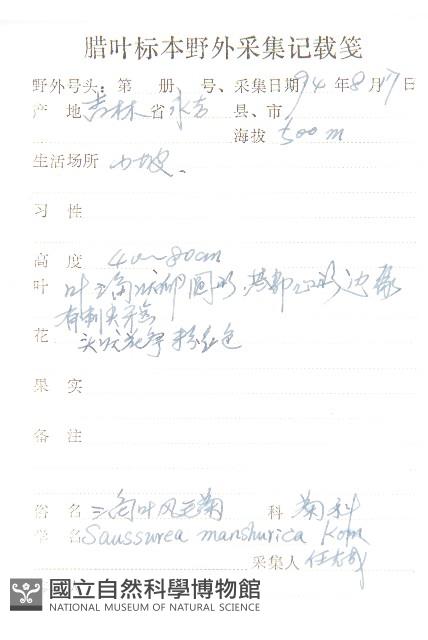 腊叶标本野外采集记载笺
野外号头: 第 册 号、采集日期 94 年 8 月 17 日
产 地 吉林 省 永吉 县、市
海拔 500 m
生活场所 山坡、
习 性
高 度 40~80cm
叶 叶三角状卵圆形,基部心形 边缘
有刺尖牙齿
花 头状花序 粉红色
果 实
备 注
俗 名 三角叶风毛菊 科 菊科
学 名 Saussurea manshurica Kom
采集人 任
國立自然科學博物館
NATIONAL MUSEUM OF NATURAL SCIENCE